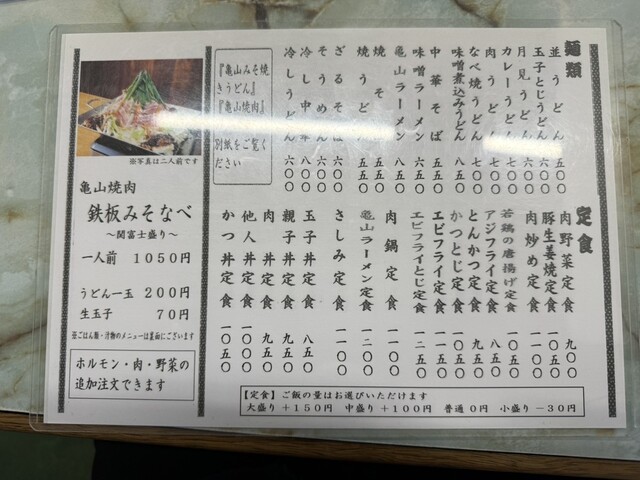 麺類
並うどん 五〇〇
玉子とじうどん 六〇〇
月見うどん
カレーうどん
肉うどん 七〇〇
なべ焼うどん 七〇〇
味噌煮込みうどん 八五〇
中華そば 五五〇
味噌ラーメン 六五〇
亀山ラーメン 八五〇
焼そば 五五〇
焼うどん 五五〇
ざるそば 六〇〇
そうめん 六〇〇
冷し中華
冷しうどん 六〇〇
『亀山みそ焼
きうどん』
『亀山焼肉』
別紙をご覧く
ださい
定食
肉野菜定食 九〇〇
豚生姜焼定食 一〇〇〇
肉炒め定食 一一〇〇
若鶏の唐揚げ定食
アジフライ定食 八五〇
とんかつ定食 九五〇
かつとじ定食 一〇五〇
エビフライ定食 一一五〇
エビフライとじ定食 一二五〇
肉鍋定食 一一〇〇
亀山ラーメン定食 一二〇〇
さしみ定食 一一〇〇
玉子丼定食 八五〇
親子丼定食 九五〇
肉丼定食 九五〇
他人丼定食 一〇〇〇
かつ丼定食 一〇五〇
【定食】ご飯の量はお選びいただけます
大盛り＋150円 中盛り＋100円 普通0円 小盛り－30円
※写真は二人前です
亀山焼肉
鉄板みそなべ
～関富士盛り～
一人前 1050円
うどん一玉 200円
生玉子 70円
※ごはん類・汁物のメニューは裏面にございます
ホルモン・肉・野菜の
追加注文できます